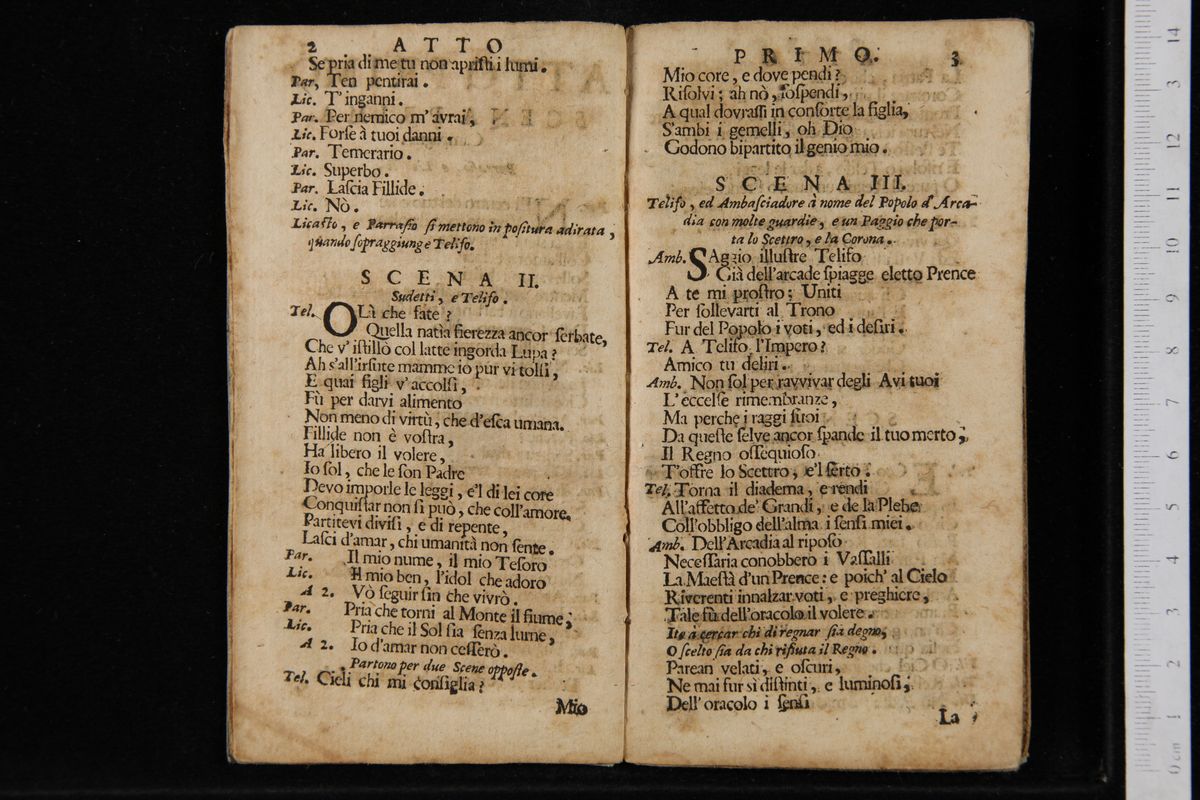 2 ATTO
Se pria di me tu non apriſti i lumi.
Par, Ten pentirai.
Lic. T'inganni.
Par. Per nemico m'avrai,
Lic. Forſe à tuoi danni.
Par. Temerario.
Lic. Superbo.
Par. Laſcia Fillide.
Lic. Nò.
Licaſto, e Parraſio ſi mettono in poſitura adirata,
quando ſopraggiunge Teliſo.
SCENA II.
Sudetti, e Teliſo.
Tel. OLà che fate?
Quella natìa fierezza ancor ſerbate,
Che v'iſtillò col latte ingorda Lupa?
Ah s'all'irſute mamme io pur vi tolſi,
E quai figli v'accolſi,
Fù per darvi alimento
Non meno di virtù, che d'eſca umana.
Fillide non è voſtra,
Ha libero il volere,
Io ſol, che le ſon Padre
Devo imporle le leggi, e'l di lei core
Conquiſtar non ſi può, che coll'amore.
Partitevi diviſi, e di repente,
Laſci d'amar, chi umanità non ſente.
Par. Il mio nume, il mio Teſoro
Lic. Il mio ben, l'idol che adoro
A 2. Vò ſeguir fin che vivrò.
Par. Pria che torni al Monte il fiume;
Lic. Pria che il Sol ſia ſenza lume,
A 2. Io d'amar non ceſſerò.
Partono per due Scene oppoſte.
Tel. Cieli chi mi conſiglia?
Mio
PRIMO. 3
Mio core, e dove pendi?
Riſolvi; ah nò, ſoſpendi,
A qual dovraſſi in conſorte la figlia,
S'ambi i gemelli, oh Dio
Godono bipartito il genio mio.
SCENA III.
Teliſo, ed Ambaſciadore à nome del Popolo d'Arca-
dia con molte guardie, e un Paggio che por-
ta lo Scettro, e la Corona.
Amb. SAggio illuſtre Teliſo
Già dell'arcade ſpiagge eletto Prence
A te mi proſtro; Uniti
Per ſollevarti al Trono
Fur del Popolo i voti, ed i deſiri.
Tel. A Teliſo l'Impero?
Amico tu deliri.
Amb. Non ſol per ravvivar degli Avi tuoi
L'eccelſe rimembranze,
Ma perche i raggi ſuoi
Da queſte ſelve ancor ſpande il tuo merto;
Il Regno oſſequioſo
T'offre lo Scettro, e'l ſerto.
Tel. Torna il diadema, e rendi
All'affetto de' Grandi, e de la Plebe
Coll'obbligo dell'alma i ſenſi miei.
Amb. Dell'Arcadia al ripoſo
Neceſſaria conobbero i Vaſſalli
La Maeſtà d'un Prence: e poich' al Cielo
Riverenti innalzar voti, e preghiere,
Tale fù dell'oracolo il volere.
Ite à cercar chi di regnar ſia degno,
O ſcelto ſia da chi rifiuta il Regno.
Parean velati, e oſcuri,
Ne mai fur sì diſtinti, e luminoſi;
Dell'oracolo i ſenſi
La